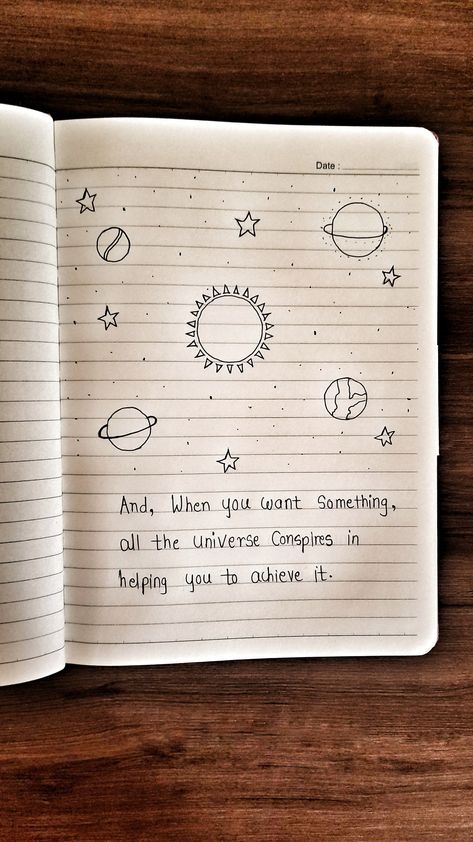 Date :
And, When you want Something,
all the universe Conspires in
helping you to achieve it.